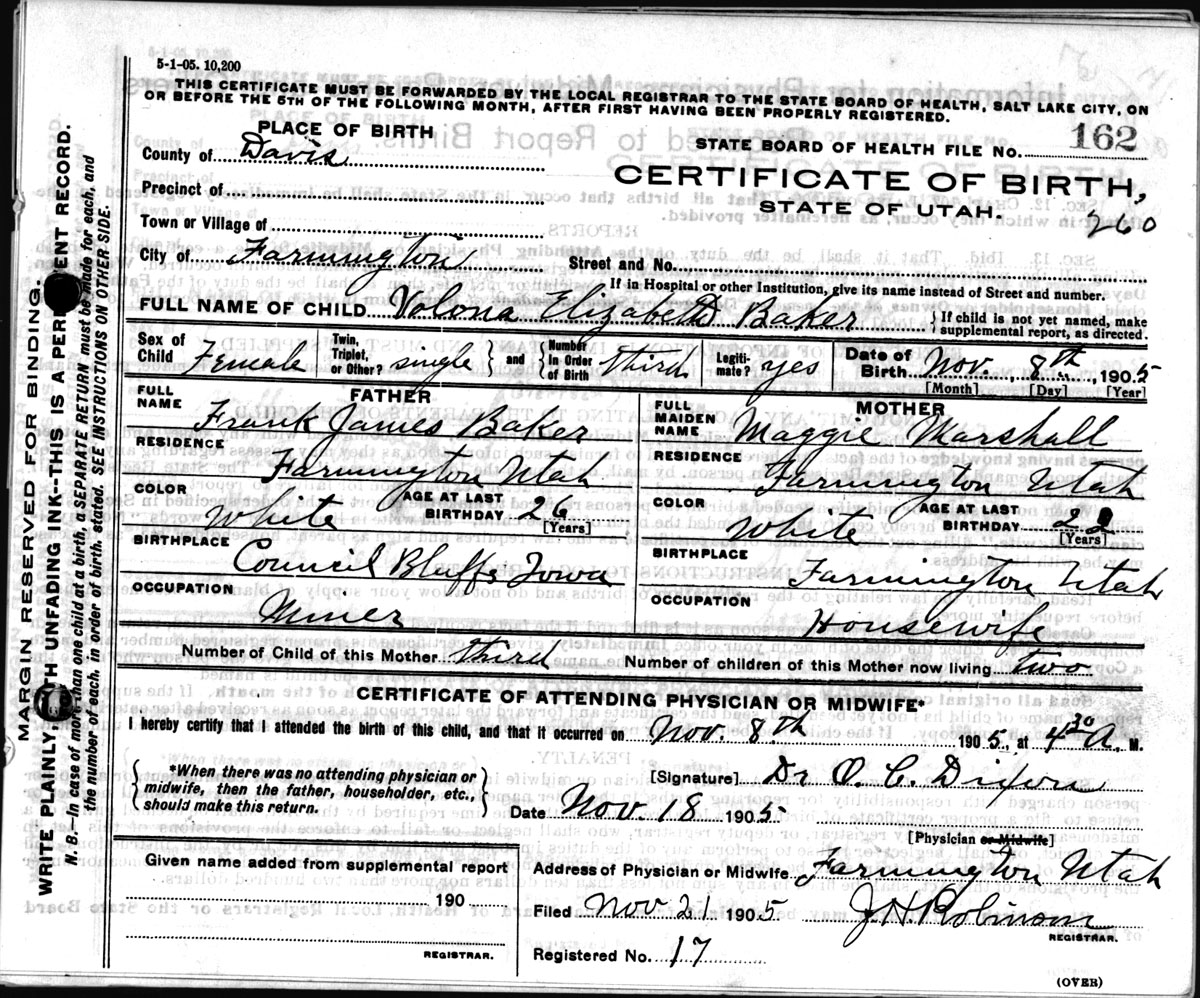 5-1-05. 10,200
THIS CERTIFICATE MUST BE FORWARDED BY THE LOCAL REGISTRAR TO THE STATE BOARD OF HEALTH, SALT LAKE CITY, ON
OR BEFORE THE 5TH OF THE FOLLOWING MONTH, AFTER FIRST HAVING BEEN PROPERLY REGISTERED.
PLACE OF BIRTH
STATE BOARD OF HEALTH FILE No. 162
County of Davis
CERTIFICATE OF BIRTH,
Precinct of
STATE OF UTAH.
260
Town or Village of
City of Farmington
Street and No.
If in Hospital or other Institution, give its name instead of Street and number.
FULL NAME OF CHILD Volona Elizabeth Baker } If child is not yet named, make
supplemental report, as directed.
Sex of Child Female
Twin, Triplet, or Other? single } and { Number In Order of Birth third
Legitimate? yes
Date of Birth Nov. 8th, 1905
[Month] [Day] [Year]
FATHER
FULL NAME Frank James Baker
RESIDENCE Farmington Utah
COLOR White
AGE AT LAST BIRTHDAY 26 [Years]
BIRTHPLACE Council Bluffs Iowa
OCCUPATION Miner
MOTHER
FULL MAIDEN NAME Maggie Marshall
RESIDENCE Farmington Utah
COLOR White
AGE AT LAST BIRTHDAY 22 [Years]
BIRTHPLACE Farmington Utah
OCCUPATION Housewife
Number of Child of this Mother third Number of children of this Mother now living two
CERTIFICATE OF ATTENDING PHYSICIAN OR MIDWIFE*
I hereby certify that I attended the birth of this child, and that it occurred on Nov. 8th 1905, at 4 30 A. M.
{ *When there was no attending physician or
midwife, then the father, householder, etc.,
should make this return. }
[Signature] Dr O. C. Dixon
Date Nov. 18 1905
[Physician or Midwife]
Given name added from supplemental report
190
REGISTRAR.
Address of Physician or Midwife Farmington Utah
Filed Nov 21 1905 J. H. Robinson
REGISTRAR.
Registered No. 17
(OVER)
MARGIN RESERVED FOR BINDING.
WRITE PLAINLY, WITH UNFADING INK--THIS IS A PERMANENT RECORD.
N. B.—In case of more than one child at a birth, a SEPARATE RETURN must be made for each, and
the number of each, in order of birth, stated. SEE INSTRUCTIONS ON OTHER SIDE.